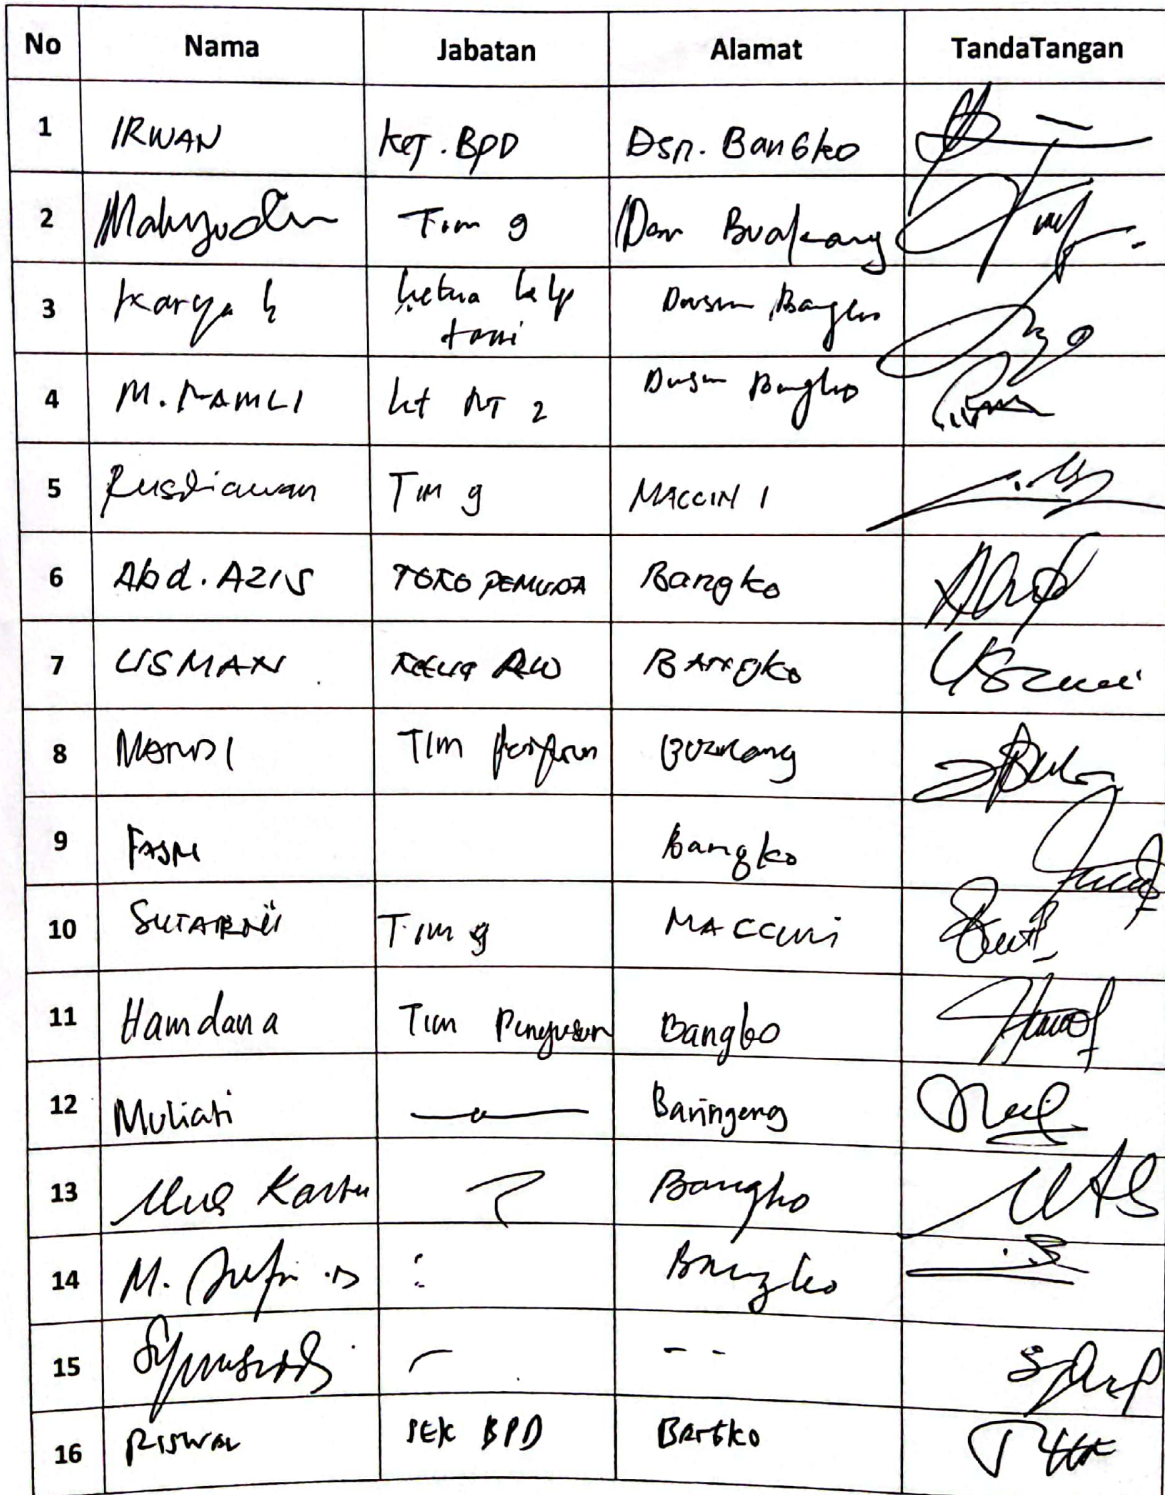 No Nama Jabatan Alamat TandaTangan
1 IRWAN Ket. BPD Dsn. Bangko
2 Mahyudin Tim 9 Dsn Buakang
3 Karya ketua klp
tani Dusun Bangko
4 M. RAMLI kt RT 2 Dusun Bangko
5 Rusdiawan Tim 9 MACCINI
6 Abd. AZIS TOKO PEMUDA Bangko
7 USMAN Ketua RW BANGKO
8 Tim Buakang
9 Bangko
10 Tim 9 MACCINI
11 Hamdana Tim Penyusun Bangko
12 Muliati Baringeng
13 Bangko
14 M. Bangko
15
16 RISWAN SEK BPD